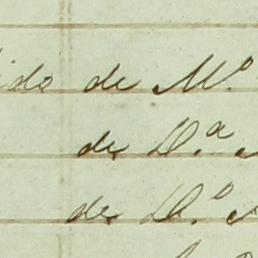 ido de M.º
de D.ª
de D.º